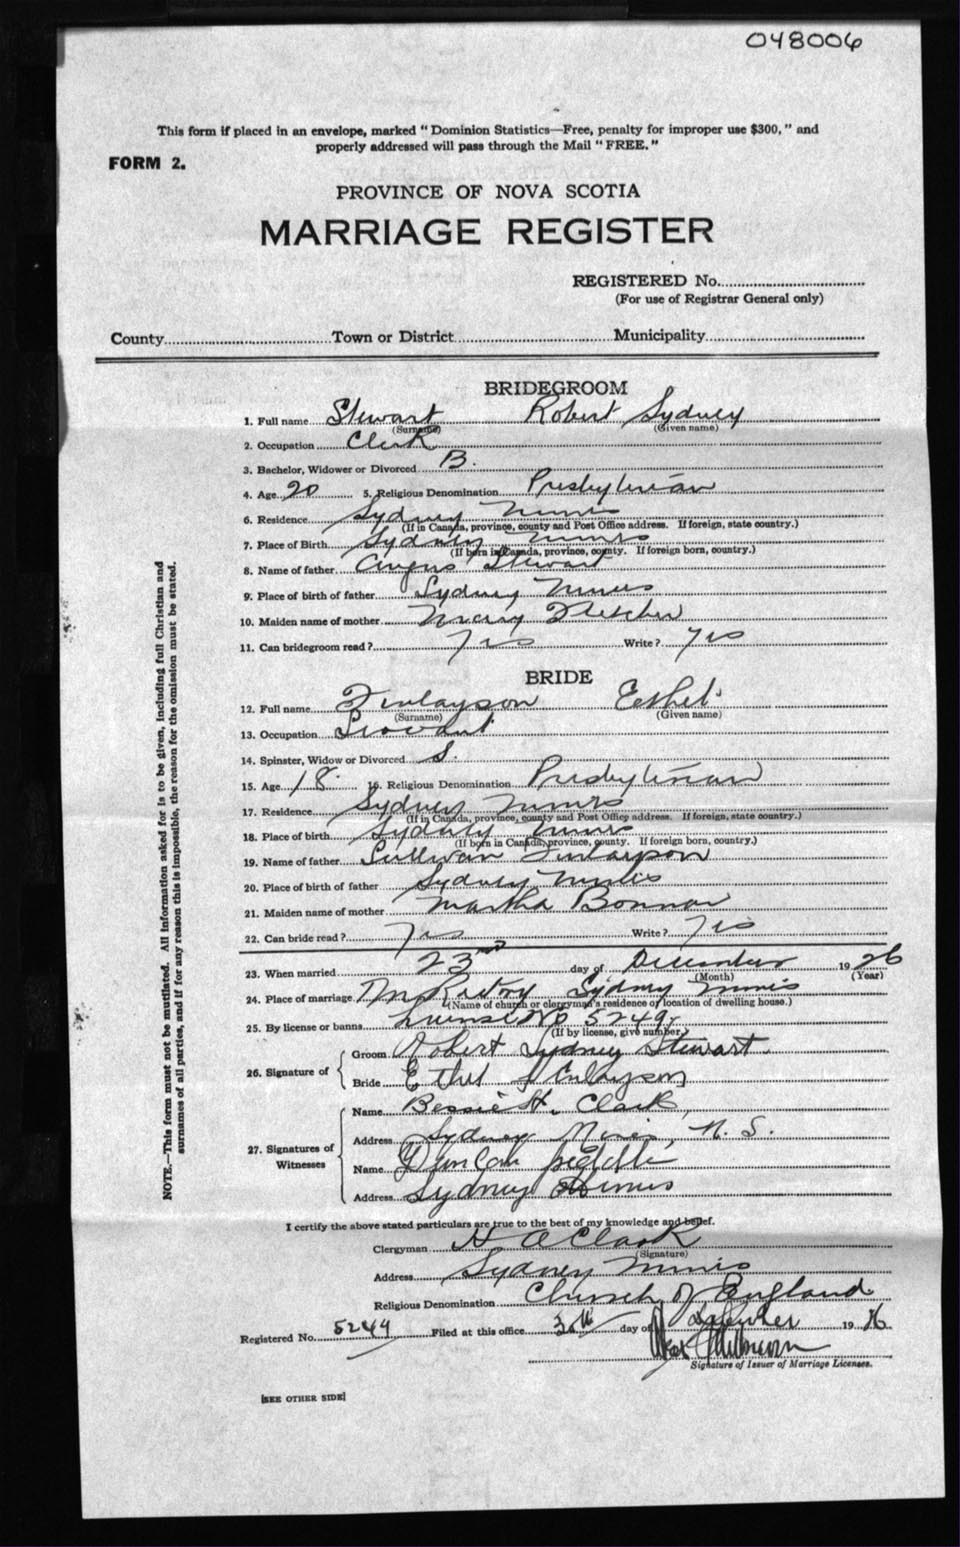 048006
This form if placed in an envelope, marked "Dominion Statistics—Free, penalty for improper use $300," and
properly addressed will pass through the Mail "FREE."
FORM 2.
PROVINCE OF NOVA SCOTIA
MARRIAGE REGISTER
REGISTERED No.
(For use of Registrar General only)
County Town or District Municipality
BRIDEGROOM
1. Full name Stewart Robert Sydney
(Surname) (Given name)
2. Occupation Clerk
3. Bachelor, Widower or Divorced B.
4. Age 20 5. Religious Denomination Presbyterian
6. Residence Sydney Mines
(If in Canada, province, county and Post Office address. If foreign, state country.)
7. Place of Birth Sydney Mines
(If born in Canada, province, county. If foreign born, country.)
8. Name of father Angus Stewart
9. Place of birth of father Sydney Mines
10. Maiden name of mother Mary Fletcher
11. Can bridegroom read? Yes Write? Yes
BRIDE
12. Full name Finlayson Eethel
(Surname) (Given name)
13. Occupation Servant
14. Spinster, Widow or Divorced S.
15. Age 18. 16. Religious Denomination Presbyterian
17. Residence Sydney Mines
(If in Canada, province, county and Post Office address. If foreign, state country.)
18. Place of birth Sydney Mines
(If born in Canada, province, county. If foreign born, country.)
19. Name of father Sullivan Finlayson
20. Place of birth of father Sydney Mines
21. Maiden name of mother Martha Bonnar
22. Can bride read? Yes Write? Yes
23. When married 23rd day of December 1926
(Month) (Year)
24. Place of marriage Rectory Sydney Mines
(Name of church or clergyman's residence or location of dwelling house.)
25. By license or banns License No 5249
(If by license, give number.)
26. Signature of
Groom Robert Sydney Stewart
Bride Ethel Finlayson
27. Signatures of Witnesses
Name Bessie H. Clark
Address Sydney Mines, N. S.
Name Duncan
Address Sydney Mines
I certify the above stated particulars are true to the best of my knowledge and belief.
Clergyman H A Clark
(Signature)
Address Sydney Mines
Religious Denomination Church of England
Registered No. 5249 Filed at this office 30th day of December 1926
Signature of Issuer of Marriage Licenses.
[SEE OTHER SIDE]
NOTE.—This form must not be mutilated. All information asked for is to be given, including full Christian and
surnames of all parties, and if for any reason this is impossible, the reason for the omission must be stated.